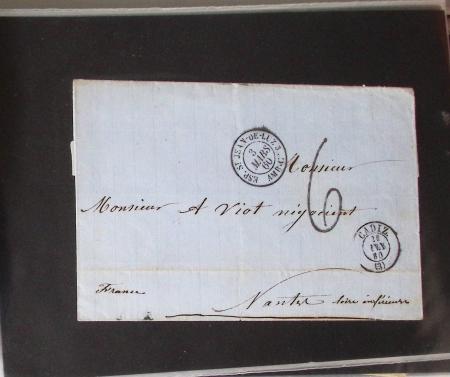 ESP. ST JEAN-DE-LUZ 3 AMB. C.
3
MARS
60
Monsieur
6
Monsieur A Viot négociant
CADIZ
FEV
60
(3)
France
Nantes Loire inférieure